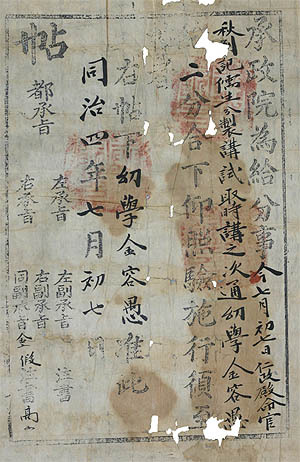 承政院為給分事今七月初七日仁政殿命官
秋記儒生製講試取時講之次通幼學金容愚
二分合下仰照驗施行須至
右帖下幼學金容愚准此
同治四年七月初七日
帖
都承旨
左承旨
右承旨
左副承旨
右副承旨
同副承旨金
注書
假注書高